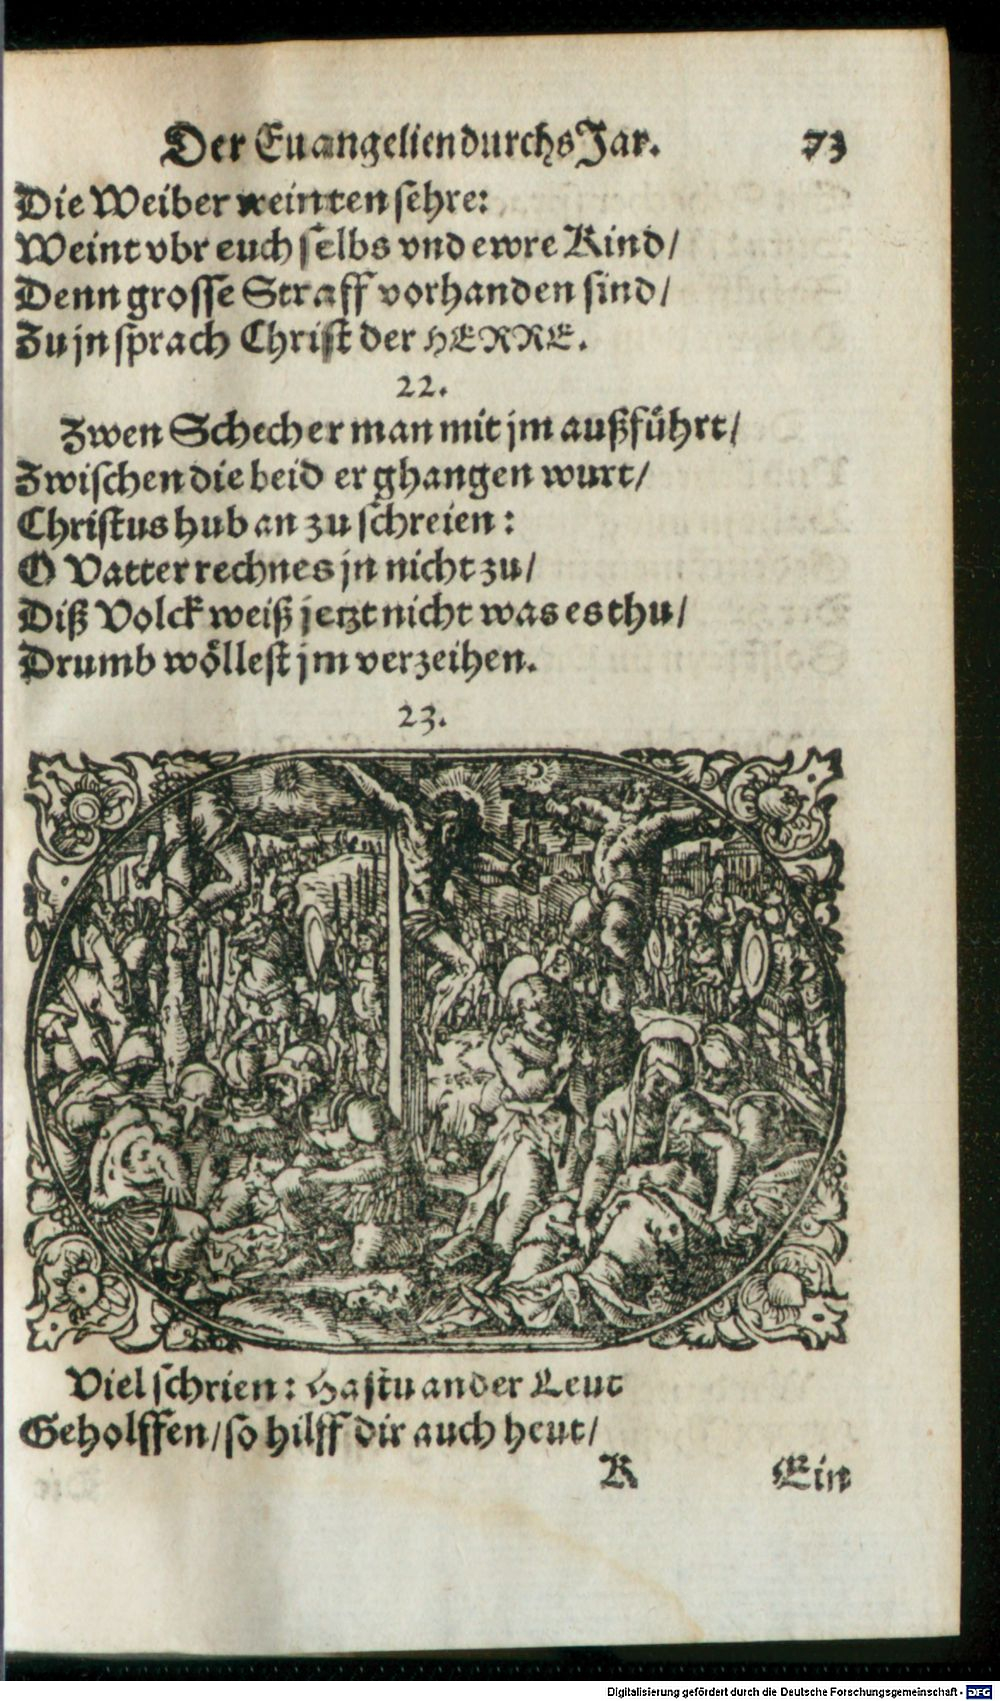 Der Euangelien durchs Jar. 73
Die Weiber weinten sehre:
Weint vbr euch selbs vnd ewre Kind/
Denn grosse Straff vorhanden sind/
Zu jn sprach Christ der HERRE.
22.
Zwen Schecher man mit jm außführt/
Zwischen die beid er ghangen wurt/
Christus hub an zu schreien:
O Vatter rechnes jn nicht zu/
Diß Volck weiß jetzt nicht was es thu/
Drumb wöllest jm verzeihen.
23.
Viel schrien: Hastu ander Leut
Geholffen/so hilff dir auch heut/
K Ein
Digitalisierung gefördert durch die Deutsche Forschungsgemeinschaft - DFG